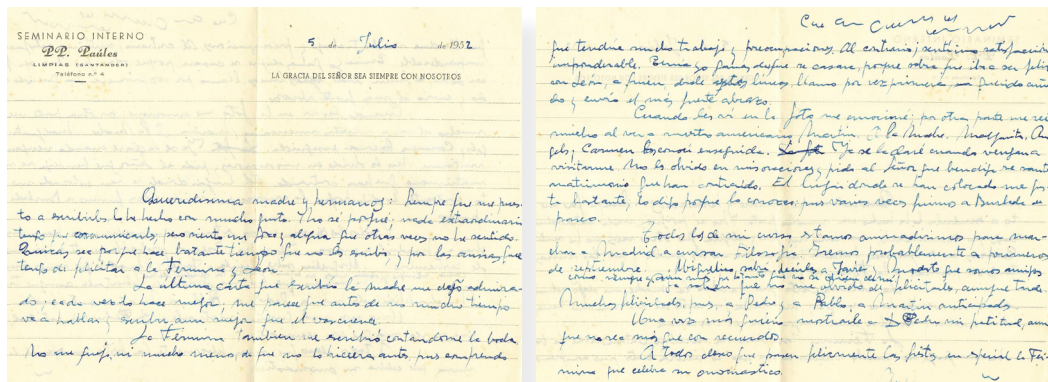 SEMINARIO INTERNO
PP. Paúles
LIMPIAS (SANTANDER)
Teléfono n.º 4
5 de Julio de 1952
LA GRACIA DEL SEÑOR SEA SIEMPRE CON NOSOTROS
Queridísima madre y hermanos: Siempre que me pues-
to a escribirles lo he hecho con mucho gusto. Y no sé porqué, nada extraordinario
tengo que comunicarles, pero siento un gozo y alegría que otras veces no he sentido.
Quizás sea porque hace bastante tiempo que no les escribo y por las ansias que
tengo de felicitar a la Fermina y León.
La última carta que escribió la madre me dejó admira-
do; cada vez lo hace mejor, me parece que antes de no mucho tiempo
va a hablar y escribir aun mejor que el vascuence.
La Fermina también me escribió contándome la boda.
No me quejo, ni mucho menos, de que no lo hiciera antes, pues comprendo
que tendría mucho trabajo y preocupaciones. Al contrario; sentí una satisfacción
imponderable. Tenía yo ganas de que se casara, porque sabía que iba a ser feliz
con León, a quien, desde estas líneas, llamo por vez primera, mi querido cuña-
do y envío el más fuerte abrazo.
Cuando les vi en la foto me emocioné; por otra parte me reí
mucho al ver a nuestro americano, Martín. A la Madre, Margarita, An-
gels, Carmen les conocí enseguida. Ya se la daré cuando vengan a
visitarme. No les olvido en mis oraciones y pido al Señor que bendiga ese santo
matrimonio que han contraído. El lugar donde se han colocado me gus-
ta bastante, lo digo porque lo conozco, pues varias veces fuimos a Burlada de
paseo.
Todos los de mi curso estamos animadísimos para mar-
char a Madrid a cursar Filosofía. Iremos probablemente a primeros
de septiembre. Miguelino, sabrá decirles a Javier y Modesto que somos amigos
ya sabrán que no me olvido de felicitarlo, aunque tarde.
Muchas felicidades, pues, a Pedro y a Pablo, a Martín anticipadas.
Una vez más quiero mostrarle a D. Pedro mi gratitud, aun
que no sea más que con recuerdos.
A todos deseo que pasen felizmente las fiestas, en especial la Fer-
mina que celebra su onomástico.